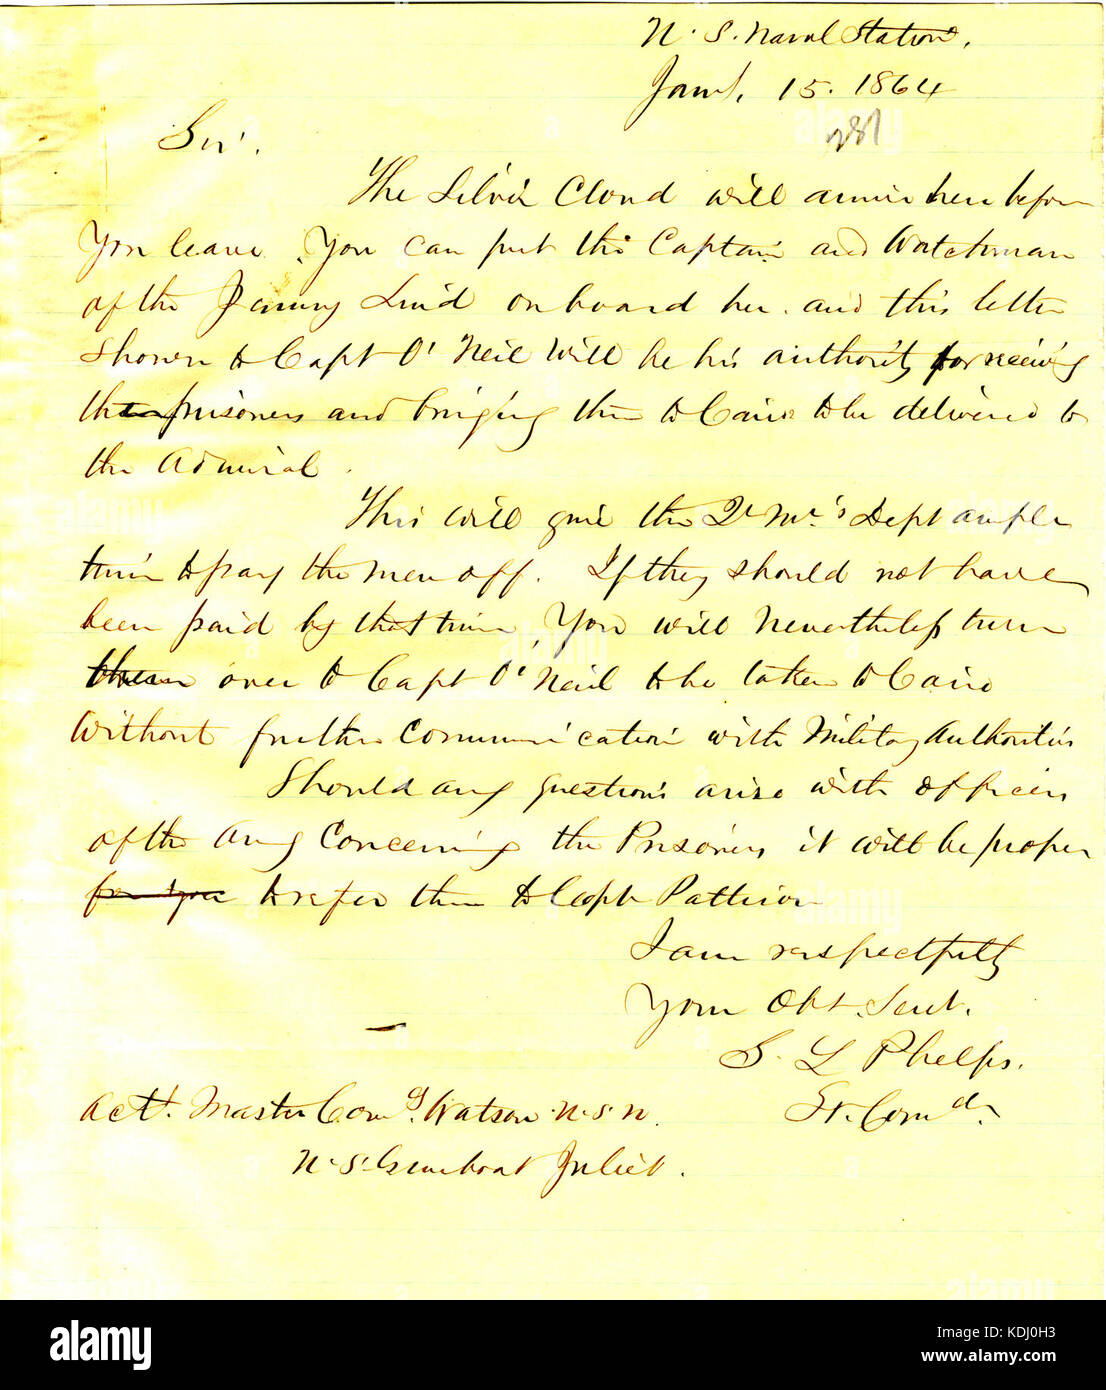 U. S. Naval Station,
Jany. 15. 1864
281
Sir.
The Silver Cloud will arrive here before
you leave. You can put the Captain and Watchman
of the Jenny Lind on board her. and this letter
shown to Capt O'Neil will be his authority for receiving
the prisoners and bringing them to Cairo to be delivered to
the Admiral.
This will give the Qr Mr's Dept ample
time to pay the men off. If they should not have
been paid by that time, You will Nevertheless turn
them over to Capt O'Neil to be taken to Cairo
Without further Communication with Military Authorities
Should any questions arise with officers
of the Army Concerning the Prisoners it will be proper
for you to refer them to Capt Pattison
I am respectfully
Your Obt. Servt.
S. L Phelps.
Lt. Comdr.
Actg. Master Comdg. Watson U.S.N.
U.S. Gunboat Juliet.
alamy
Image ID: KDJ0H3
www.alamy.com